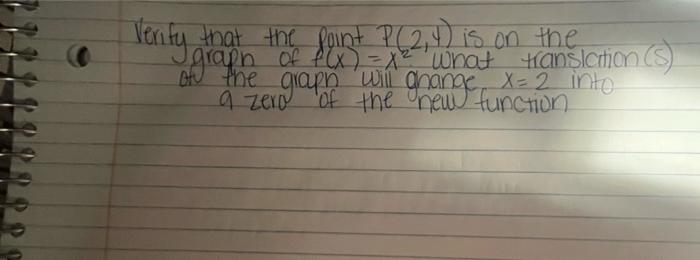 Verify that the point P(2,4) is on the
graph of f(x) = x² what translation(s)
of the graph will change x=2 into
a zero of the new function